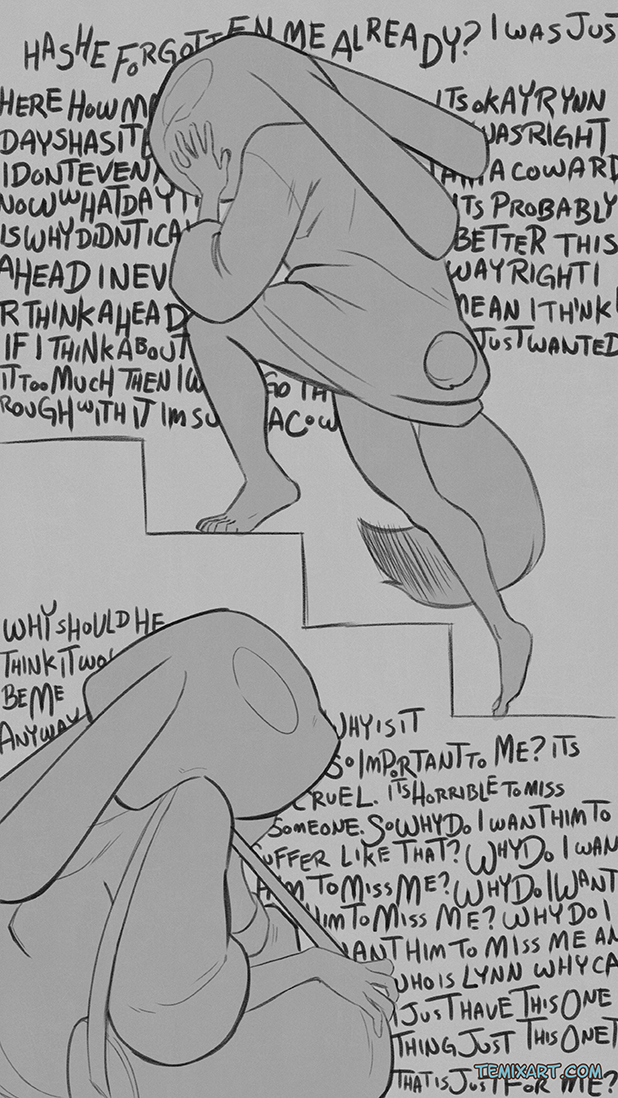 HAS HE FORGOTTEN ME ALREADY? I WAS JUST
HERE HOW
DAYS HAS IT
I DONT EVEN
NOW WHAT DAY
IS WHY DIDNT I
AHEAD I NEV
R THINK AHEAD
IF I THINK ABOUT
IT TOO MUCH THEN I GO TH
ROUGH WITH IT IM A COW
ITS OKAY RYNN
WAS RIGHT
I AM A COWARD
ITS PROBABLY
BETTER THIS
WAY RIGHT I
MEAN I THINK I
JUST WANTED
WHY SHOULD HE
THINK IT
BE ME
ANYWAY
WHY IS IT
SO IMPORTANT TO ME? ITS
CRUEL. ITS HORRIBLE TO MISS
SOMEONE. SO WHY DO I WANT HIM TO
SUFFER LIKE THAT? WHY DO I WAN
HIM TO MISS ME? WHY DO I WANT
HIM TO MISS ME? WHY DO I
WANT HIM TO MISS ME AN
WHO IS LYNN WHY CA
I JUST HAVE THIS ONE
THING JUST THIS ONE T
THAT IS JUST FOR ME?
TEMIXART.COM